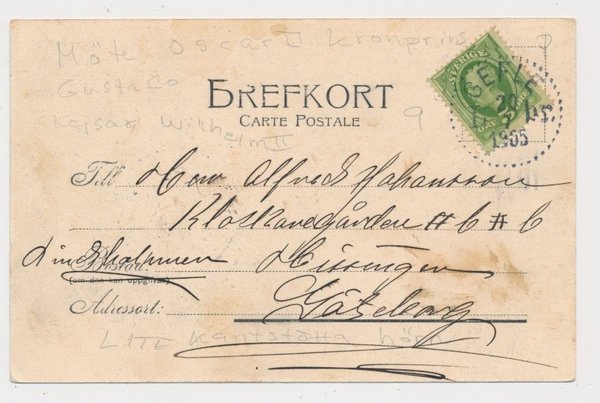 Möte Oscar II Kronprins
Gustaf o
Kejsar Wilhelm II
SVERIGE
GEFLE
20
7
1905
BREFKORT
CARTE POSTALE
9
Till Herr Alfred Johansson
6 # 6
Lindholmen
Bostad:
(om den kan uppgifvas)
Hissingen
Adressort: Göteborg
LITE kantstötta hörn